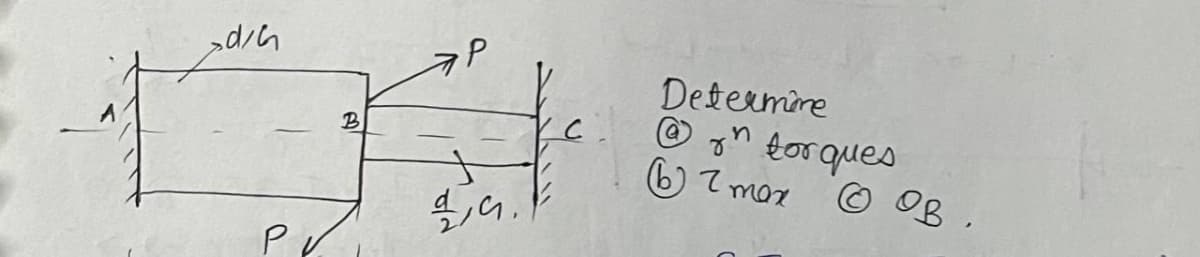 d, G
P
A
B
C
d/2, G.
P
Determine
(a) rn torques
(b) τ max (c) θB.